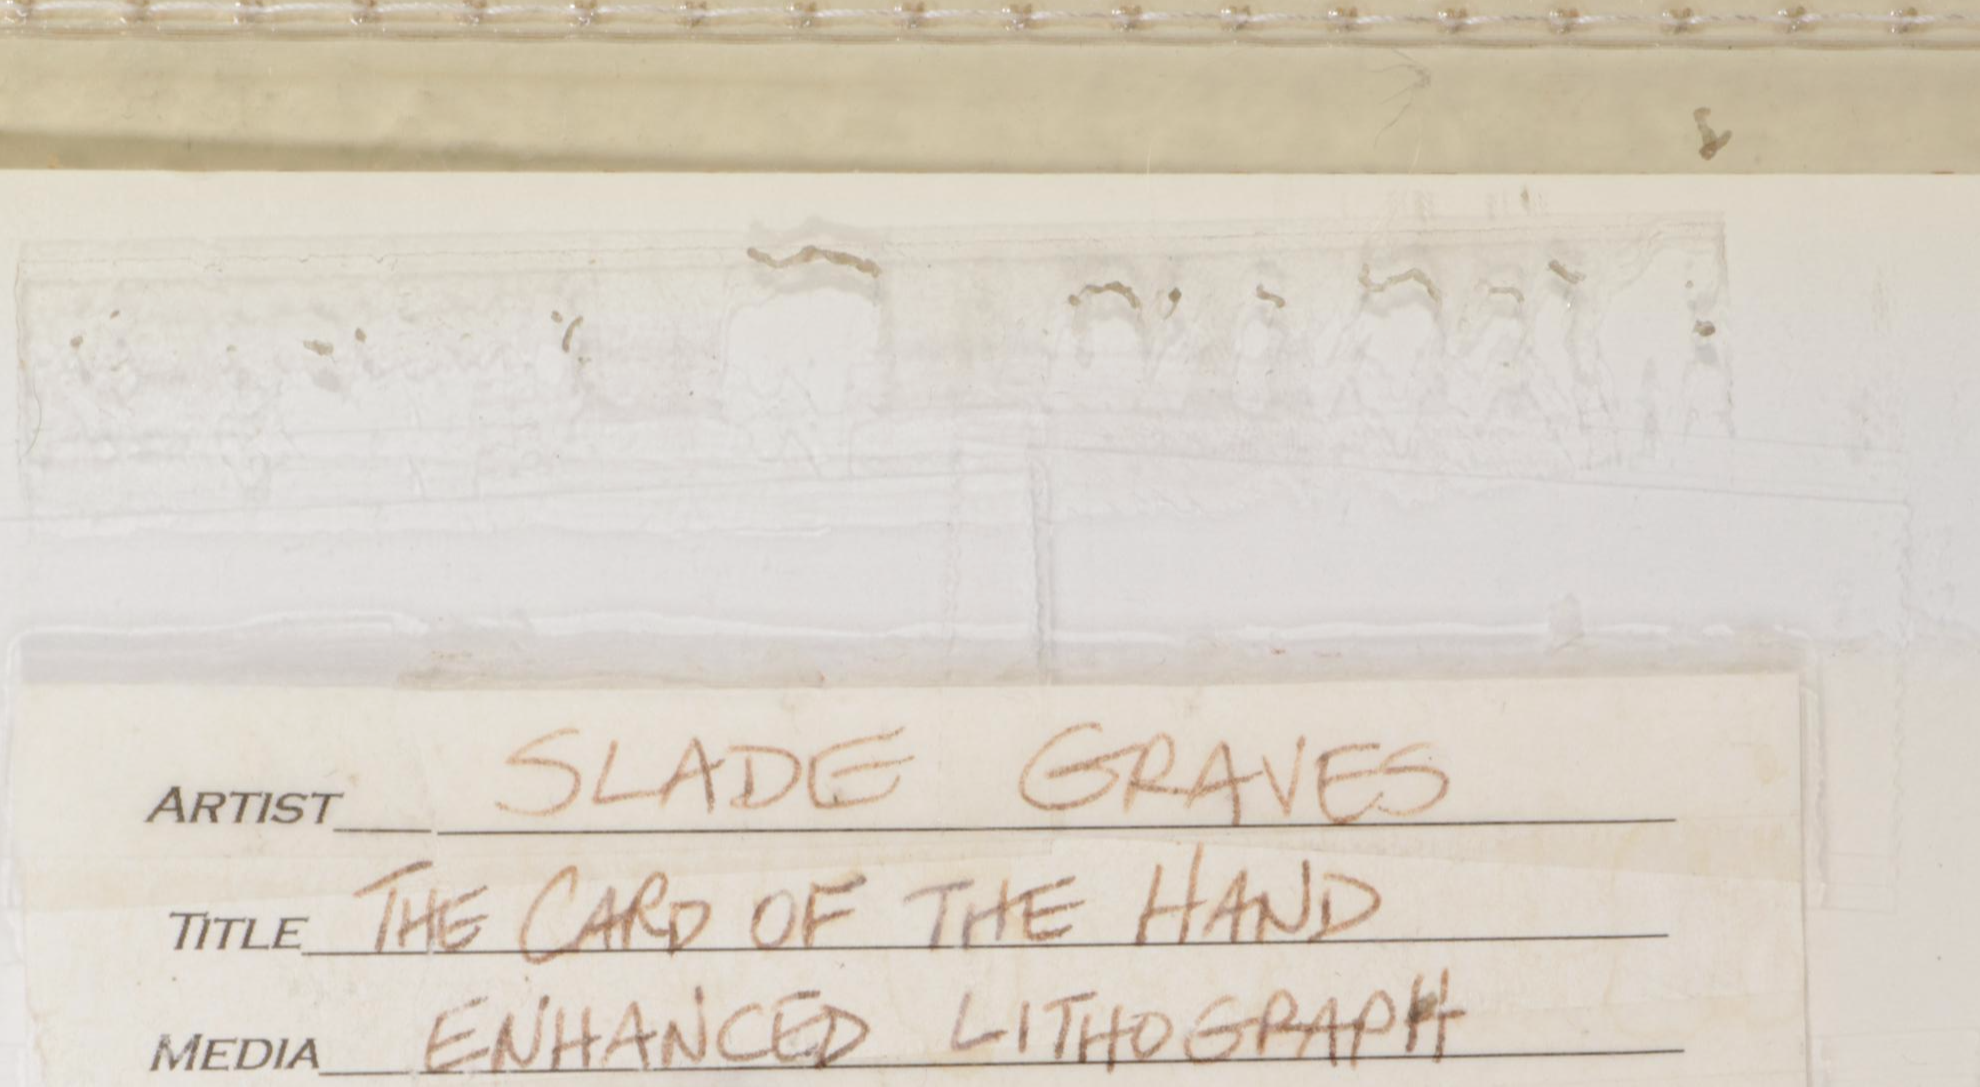 ARTIST SLADE GRAVES
TITLE THE CARD OF THE HAND
MEDIA ENHANCED LITHOGRAPH